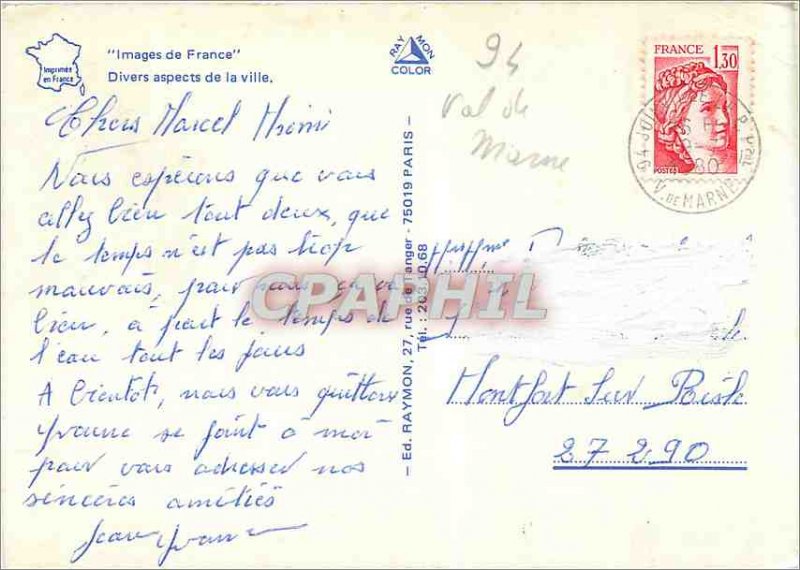 Imprimée
en France
"Images de France"
Divers aspects de la ville.
RAYMON
COLOR
94
Val de
Marne
FRANCE
1,30
POSTES
94 JOI
80
V. DE MARNE
Chers Marcel Mimi
Nous espérons que vous
allez bien tout deux, que
le temps n'est pas trop
mauvais, pour nous ça va
bien, à part le temps de
l'eau tout les jours
A bientôt, nous vous quittons
Yvonne se joint à moi
pour vous adresser nos
sincères amitiés
Jean Yvonne
– Ed. RAYMON, 27, rue de Tanger - 75019 PARIS –
Tél. : 203 0.68
Montfort Sur Risle
27290
CPAPHIL